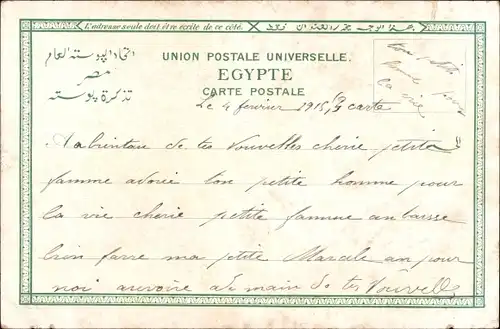 L'adresse seule doit être écrite de ce côté.
اتحاد البوسته العام
مصر
تذكرة بوسته
UNION POSTALE UNIVERSELLE.
EGYPTE
CARTE POSTALE
ton petit
pour
la vie
Le 4 fevrier 1915, carte
A a bientau de tes Nouvelles cherie petite
famme adorée ton petite homme pour
la vie cherie petite famme an baisse
bien farre ma petite Marcele an pour
noi auvoire de main de tes Nouvelle